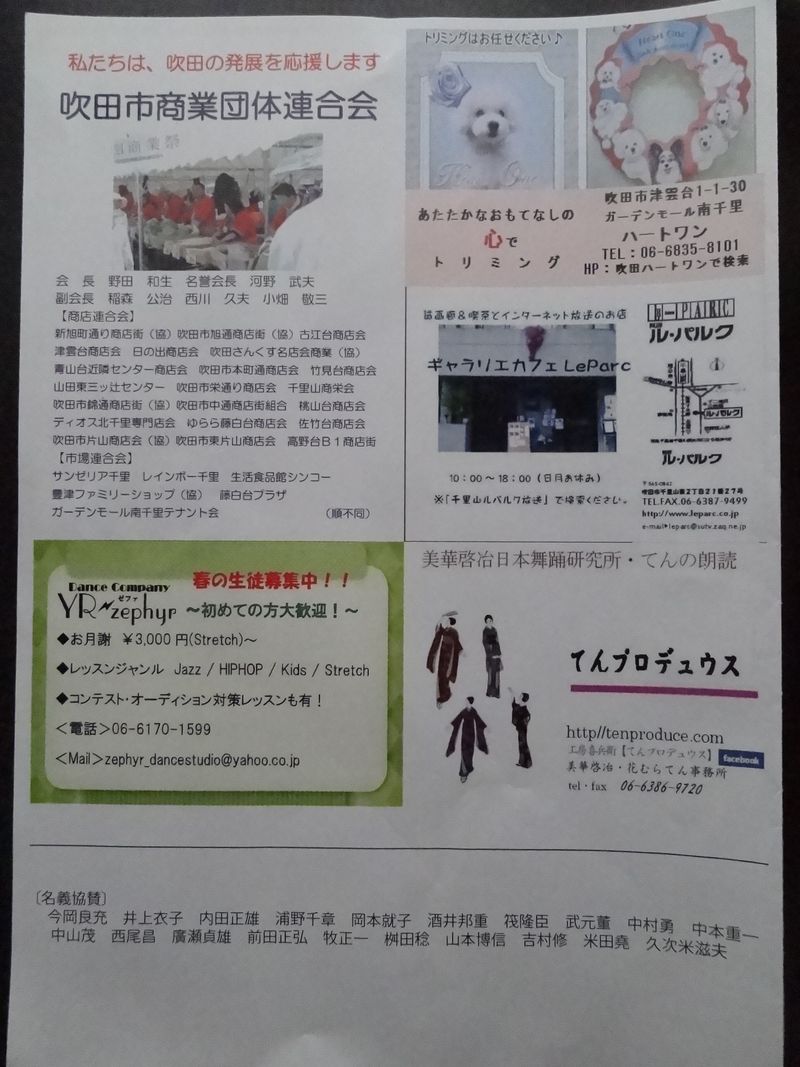 私たちは、吹田の発展を応援します
吹田市商業団体連合会
商業祭
会　長　野田　和生　名誉会長　河野　武夫
副会長　稲森　公治　西川　久夫　小畑　敬三
【商店連合会】
新旭町通り商店街（協）吹田市旭通商店街（協）古江台商店会
津雲台商店会　日の出商店会　吹田さんくす名店会商業（協）
青山台近隣センター商店会　吹田市本町通商店会　竹見台商店会
山田東三ッ辻センター　吹田市栄通り商店会　千里山商栄会
吹田市錦通商店街（協）吹田市中通商店街組合　桃山台商店会
ディオス北千里専門店会　ゆらら藤白台商店会　佐竹台商店会
吹田市片山商店会（協）吹田市東片山商店会　高野台Ｂ１商店街
【市場連合会】
サンゼリア千里　レインボー千里　生活食品館シンコー
豊津ファミリーショップ（協）　藤白台プラザ
ガーデンモール南千里テナント会　（順不同）
トリミングはお任せください♪
Heart One
あたたかなおもてなしの
心で
トリミング
吹田市津雲台1-1-30
ガーデンモール南千里
ハートワン
TEL：06-6835-8101
HP：吹田ハートワンで検索
＆喫茶とインターネット放送のお店
ギャラリエカフェ LeParc
10：00～18：00（日月お休み）
※「千里山ルパルク放送」で検索ください。
B-PARC
ル・パルク
ル・パルク
ル・パルク
〒565-0842
吹田市千里山東2丁目21番27号
TEL.FAX.06-6387-9499
http://www.leparc.co.jp
e-mail▶leparc@sutv.zaq.ne.jp
Dance Company
YR zephyr
ゼファ
春の生徒募集中！！
～初めての方大歓迎！～
◆お月謝　￥3,000円(Stretch)～
◆レッスンジャンル　Jazz / HIPHOP / Kids / Stretch
◆コンテスト・オーディション対策レッスンも有！
＜電話＞06-6170-1599
＜Mail＞zephyr_dancestudio@yahoo.co.jp
美華啓冶日本舞踊研究所・てんの朗読
てんプロデュウス
http//tenproduce.com
工房喜兵衛【てんプロデュウス】
facebook
美華啓冶・花むらてん事務所
tel・fax　06-6386-9720
〔名義協賛〕
今岡良充　井上衣子　内田正雄　浦野千章　岡本就子　酒井邦重　筏隆臣　武元董　中村勇　中本重一
中山茂　西尾昌　廣瀬貞雄　前田正弘　牧正一　桝田稔　山本博信　吉村修　米田堯　久次米滋夫